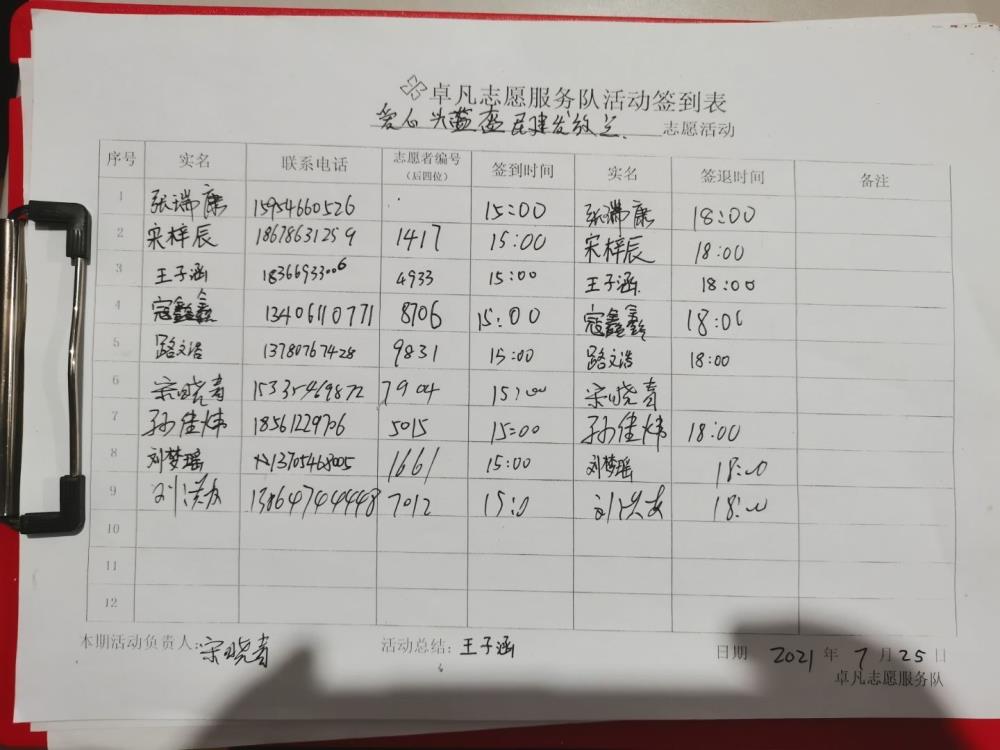 卓凡志愿服务队活动签到表
爱心头盔 志愿活动
序号 实名 联系电话 志愿者编号(后四位) 签到时间 实名 签退时间 备注
1 张瑞康 15954660526 15:00 张瑞康 18:00
2 宋梓辰 18678631259 1417 15:00 宋梓辰 18:00
3 王子涵 18366933006 4933 15:00 王子涵 18:00
4 寇鑫鑫 13406110771 8706 15:00 寇鑫鑫 18:00
5 路文浩 13780767428 9831 15:00 路文浩 18:00
6 宗晓青 15335469872 7904 15:00 宗晓青
7 孙佳炜 18561229706 5015 15:00 孙佳炜 18:00
8 刘梦瑶 13705468005 1661 15:00 刘梦瑶 18:00
9 刘洪友 13864744448 7012 15:0 刘洪友 18:00
10
11
12
本期活动负责人:宗晓青 活动总结:王子涵 日期 2021年7月25日
卓凡志愿服务队